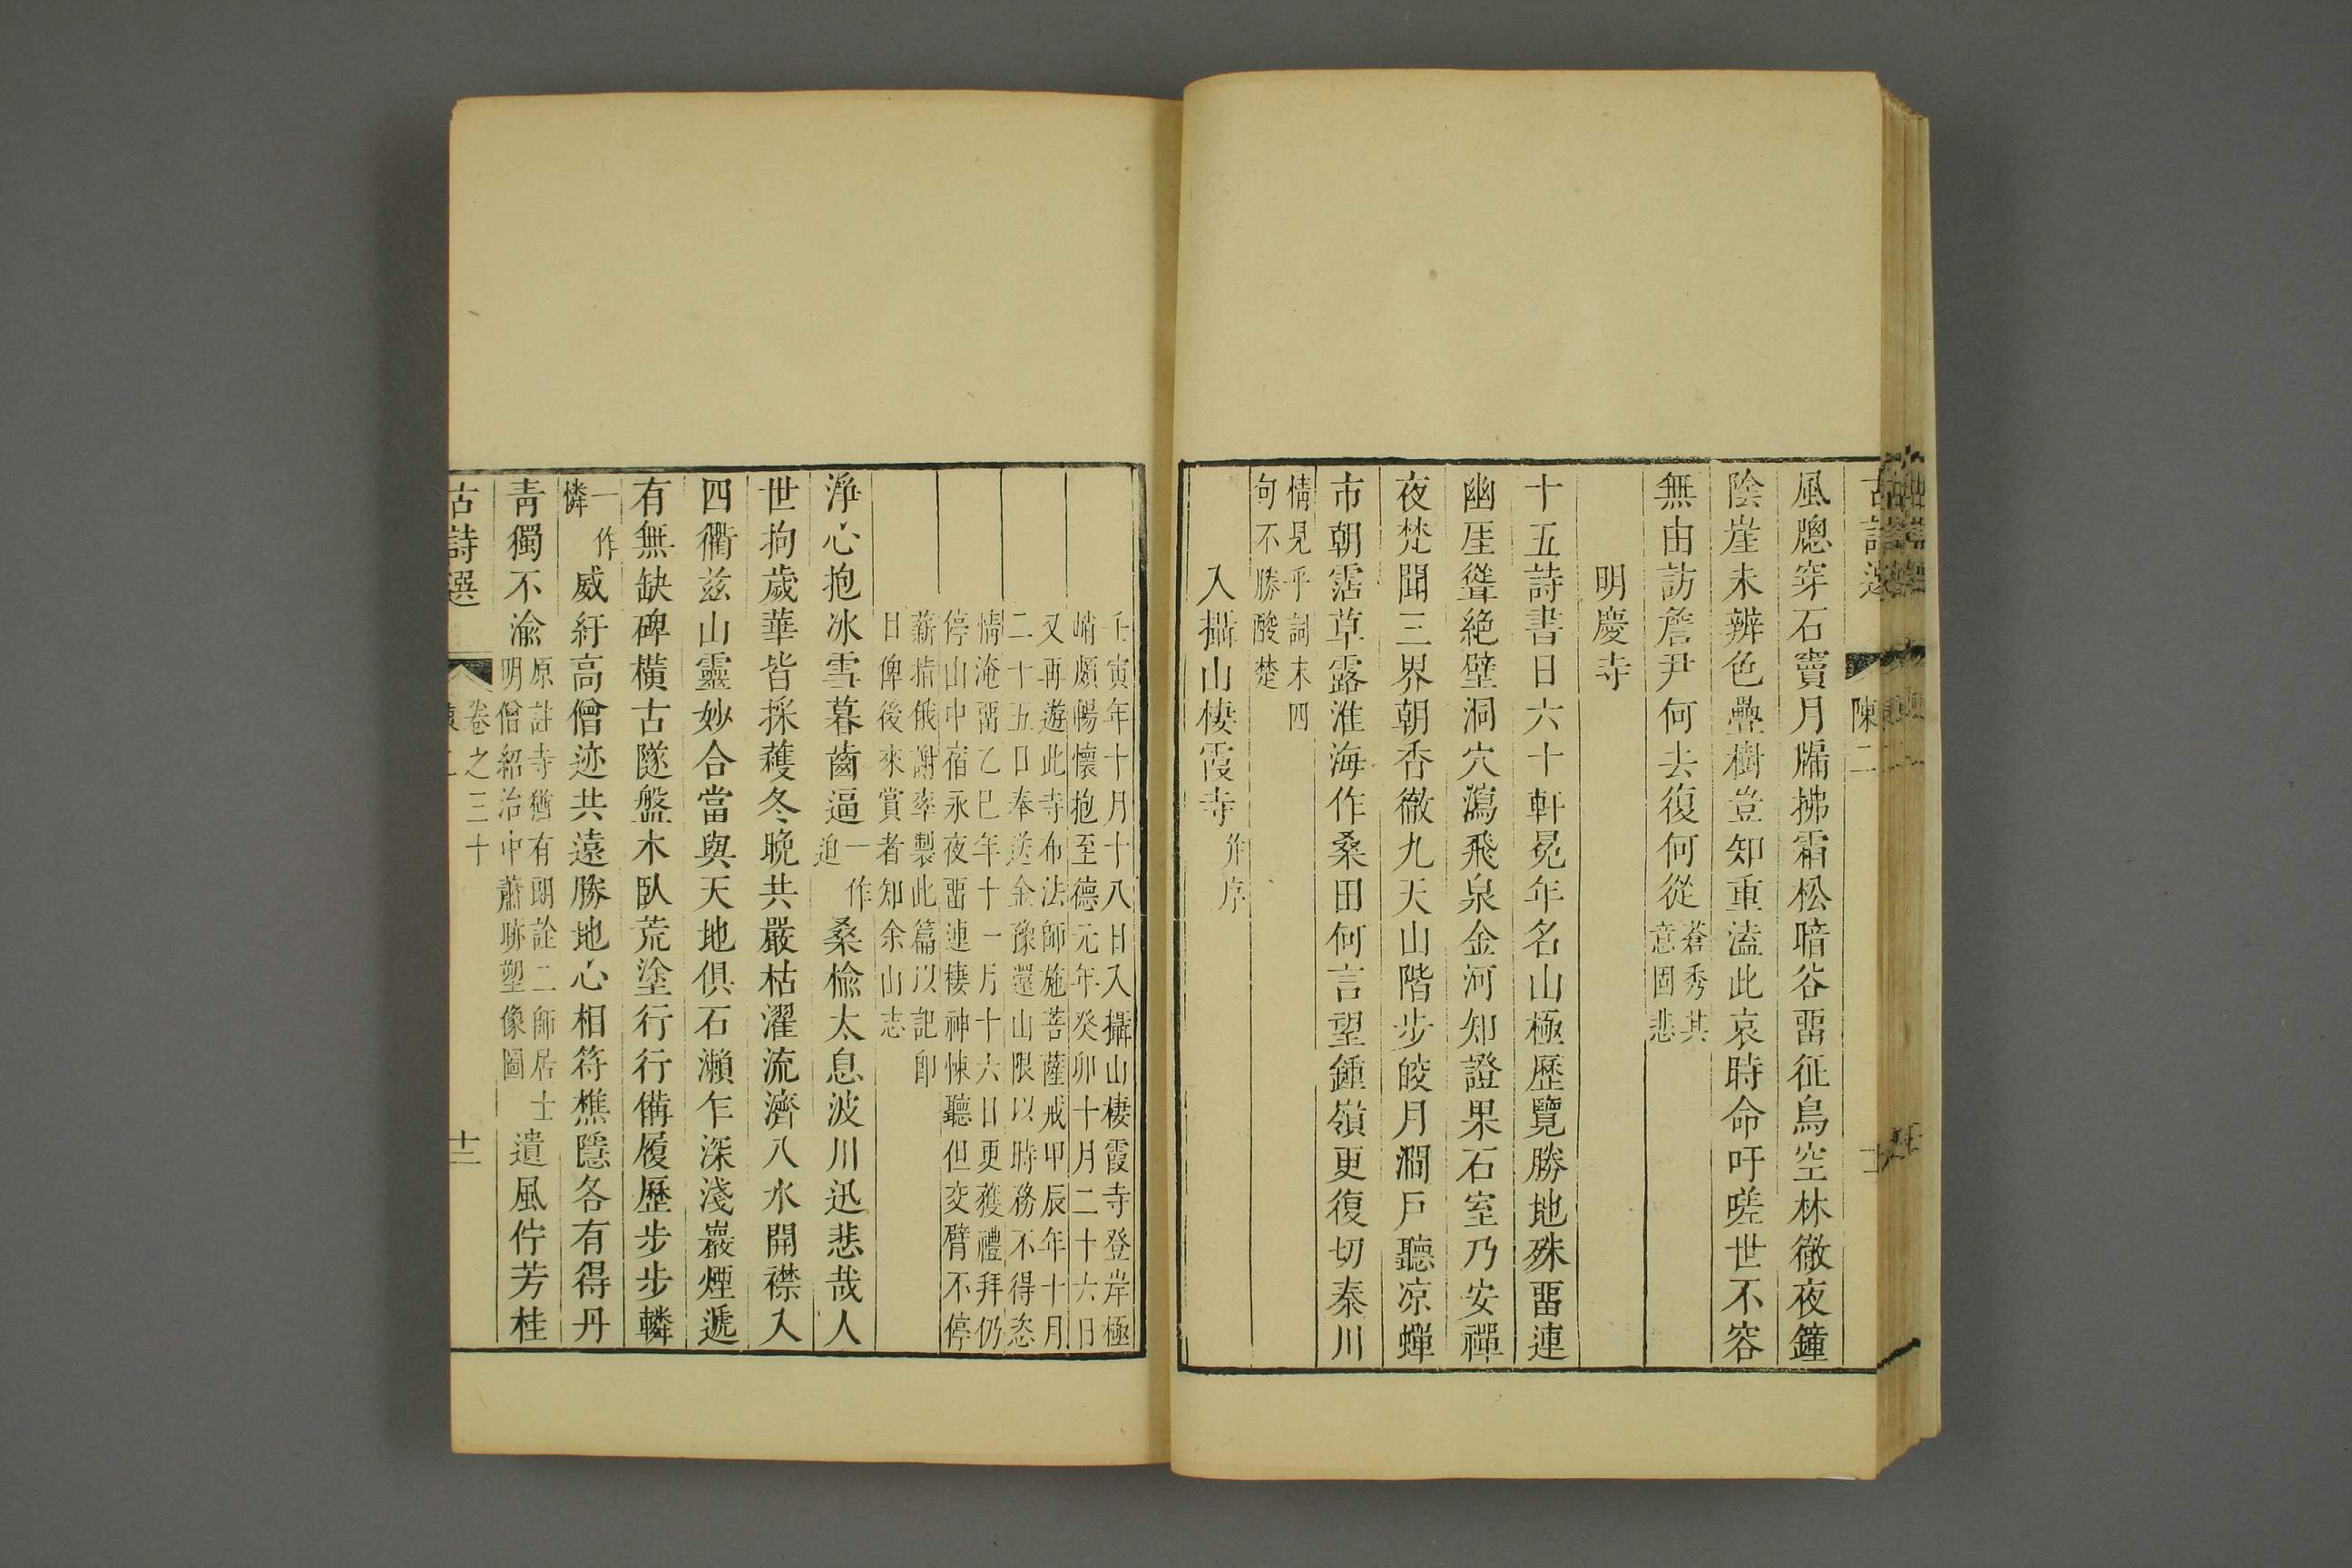 古詩選 陳二
風牕穿石竇月牖拂霜松暗谷畱征鳥空林徹夜鐘
陰崖未辨色疊樹豈知重溘此哀時命吁嗟世不容
無由訪詹尹何去復何從
蒼秀其
意固悲
明慶寺
十五詩書日六十軒冕年名山極歷覽勝地殊畱連
幽厓聳絶壁洞穴瀉飛泉金河知證果石室乃安禪
夜梵聞三界朝香徹九天山階步皎月澗戸聽凉蟬
市朝霑草露淮海作桑田何言望鍾嶺更復切秦川
情見乎詞末四
句不勝酸楚
入攝山棲霞寺 并序
壬寅年十月十八日入攝山棲霞寺登岸極
峭頗暢懷抱至德元年癸卯十月二十六日
又再遊此寺布法師施菩薩戒甲辰年十月
二十五日奉送金像還山限以時務不得恣
情淹畱乙巳年十一月十六日更獲禮拜仍
停山中宿永夜畱連棲神悚聽但交臂不停
薪指俄謝率製此篇以記卽
日俾後來賞者知余山志
淨心抱冰雪暮齒逼 一作迫 桑楡太息波川迅悲哉人
世拘歲華皆採穫冬晚共嚴枯濯流濟八水開襟入
四衢兹山靈妙合當與天地俱石瀨乍深淺巖煙遞
有無缺碑横古隧盤木臥荒塗行行備履歷步步轔
一作憐 威紆高僧迹共遠勝地心相符樵隱各有得丹
靑獨不渝
原註寺猶有朗詮二師居士
明僧紹治中蕭眎塑像圖
遺風佇芳桂
古詩選 卷之三十 陳二 十二